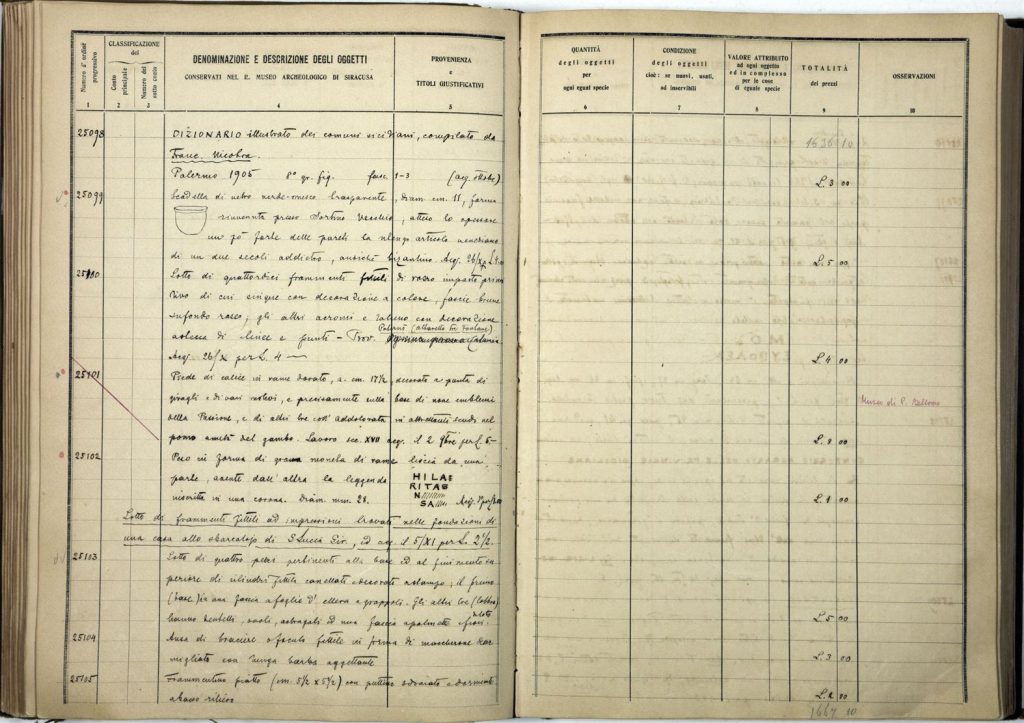 Numero d'ordine progressivo
CLASSIFICAZIONE
del
Conto principale
Numero del sotto conto
DENOMINAZIONE E DESCRIZIONE DEGLI OGGETTI
CONSERVATI NEL R. MUSEO ARCHEOLOGICO DI SIRACUSA
PROVENIENZA
e
TITOLI GIUSTIFICATIVI
1 2 3 4 5
25098 DIZIONARIO illustrato dei comuni siciliani, compilato da
Franc. Nicotra.
Palermo 1905 8° gr. fig. fasc. 1-3 (acq. ottobre)
25099 Scodella di vetro verde-onice, trasparente, diam cm. 11, forma
rinvenuta presso Sortino Vecchio, atteso lo spessore
un pò forte delle pareti la ritengo articolo veneziano
di un due secoli addietro, anzichè bizantino. Acq. 26/X
25100 Lotto di quattordici frammenti fittili di rosso impasto primi
tivo di cui cinque con decorazione a colore, fascie brune
su fondo rosso; gli altri
di linee e punti - Prov.
Acq. 26/X per L. 4
25101 Piede di calice in rame dorato, a. cm. 17½, decorato a punta di
giragli e di vari motivi, e precisamente sulla base di nove emblemi
della Passione, e di altri tre coll'addolorata in altrettanti scudi nel
pomo a metà del gambo. Lavoro sec. XVII acq. il 2 9bre per £. 8-
25102 Peso in forma di grossa moneta di rame liscia da una
parte, avente dall'altra la leggenda HILA
RITAS
N
SA
inscritta in una corona. Diam. mm. 28.
Lotto di frammenti fittili ad impressioni trovati nelle fondazioni di
una casa allo sbarcatoio di S. Lucia Sir., ed acq. il 5/XI per L. 2½.
25103 Lotto di quattro pezzi pertinenti alla base ed al finimento su
periore di cilindri fittili cancellati e decorati a stampo; il primo
(base) ha una fascia a foglie d'ellera e grappoli. Gli altri tre (labbro)
hanno dentelli, ovoli, astragali ed una fascia a palmette e fiori di loto
25104 Ansa di braciere o focolo fittile in forma di mascherone
con lunga barba aggettante
25105 Frammentino piatto (cm. 5½ x 5½) con puttino sdraiato e dormente
a basso rilievo
QUANTITÀ
degli oggetti
per
ogni egual specie
CONDIZIONE
degli oggetti
cioè: se nuovi, usati,
od inservibili
VALORE ATTRIBUITO
ad ogni oggetto
ed in complesso
per le cose
di eguale specie
TOTALITÀ
dei prezzi
OSSERVAZIONI
6 7 8 9 10
1636 10
L. 3 00
L. 5 00
L. 4 00
Museo di P. Bellomo
L. 8 00
L. 1 00
L. 5 00
L. 3 00
L. 2 00
1667 10